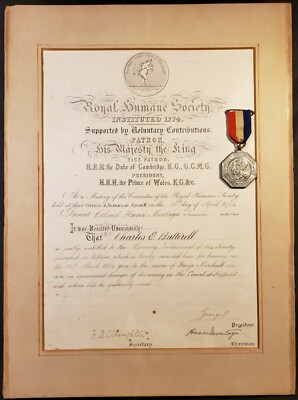 Royal Humane Society.
INSTITUTED 1774.
Supported by Voluntary Contributions.
PATRON,
His Majesty the King
VICE PATRON,
H.R.H. the Duke of Cambridge, K.G., G.C.M.G.
PRESIDENT,
H.R.H. the Prince of Wales, K.G. &c.
At a Meeting of the Committee of the Royal Humane Society
held at their Office 4 Trafalgar Square on the day of April 1904
Present Colonel Horace Montagu Treasurer in the Chair
It was Resolved Unanimously
That Charles E Butterell
is justly entitled to the Honorary Testimonial of this Society
inscribed on which is hereby awarded him for having on
the March 1904 gone to the rescue of George Marshall who
was in imminent danger of drowning in the Canal at
and whose life he gallantly saved
George P.
President.
Secretary.
Horace Montagu
Chairman.